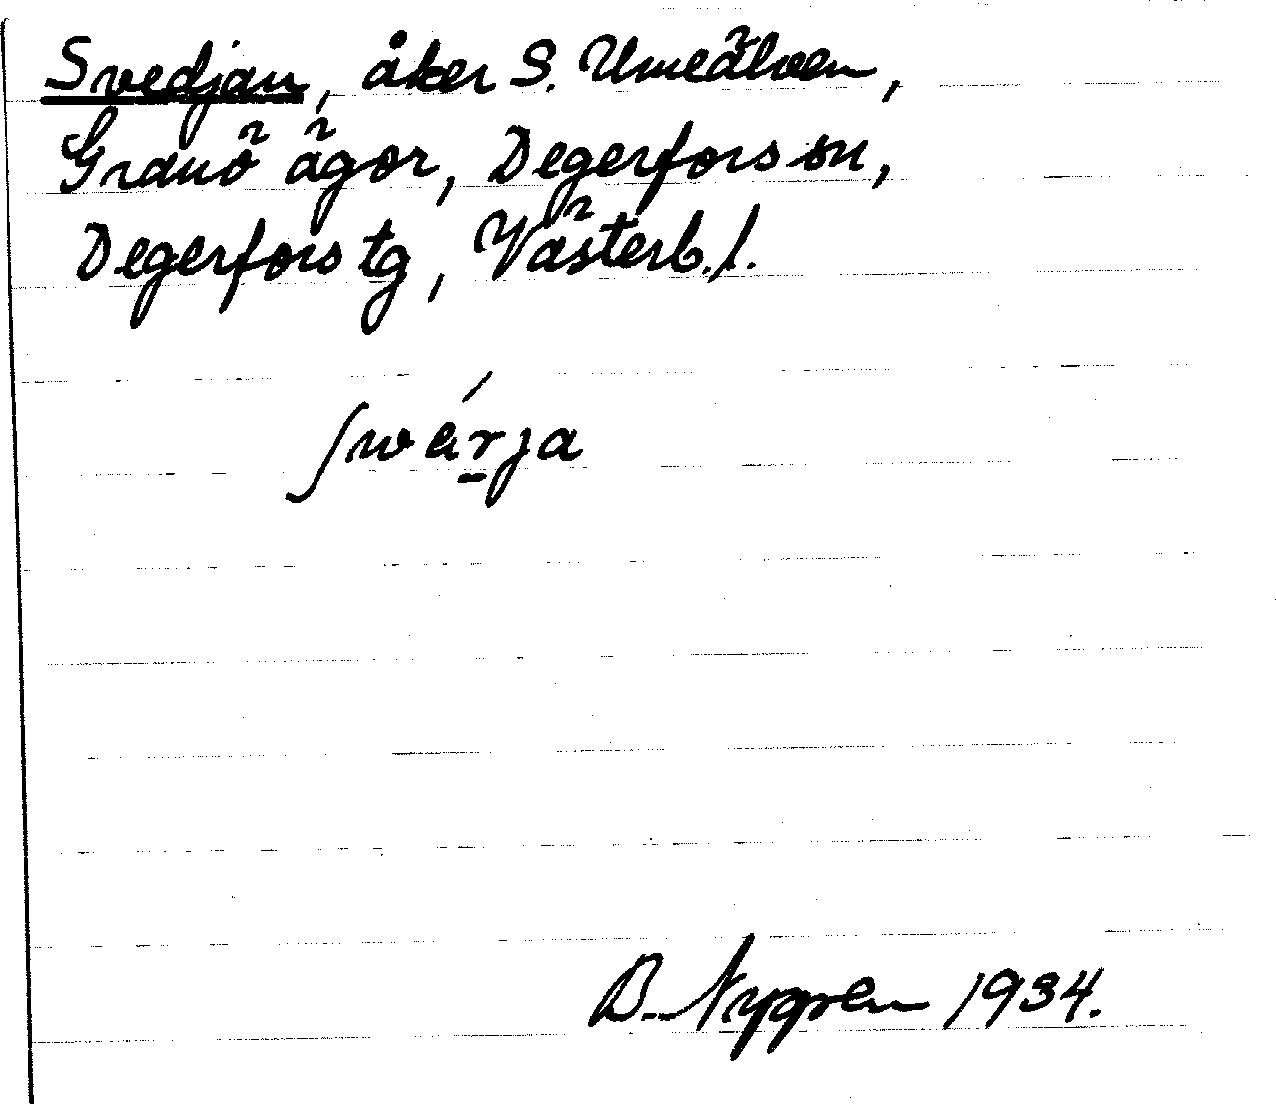 Svedjan, åker S. Umeälven,
Granö ägor, Degerfors sn,
Degerfors tg, Västerb. l.
B. Nygren 1934.